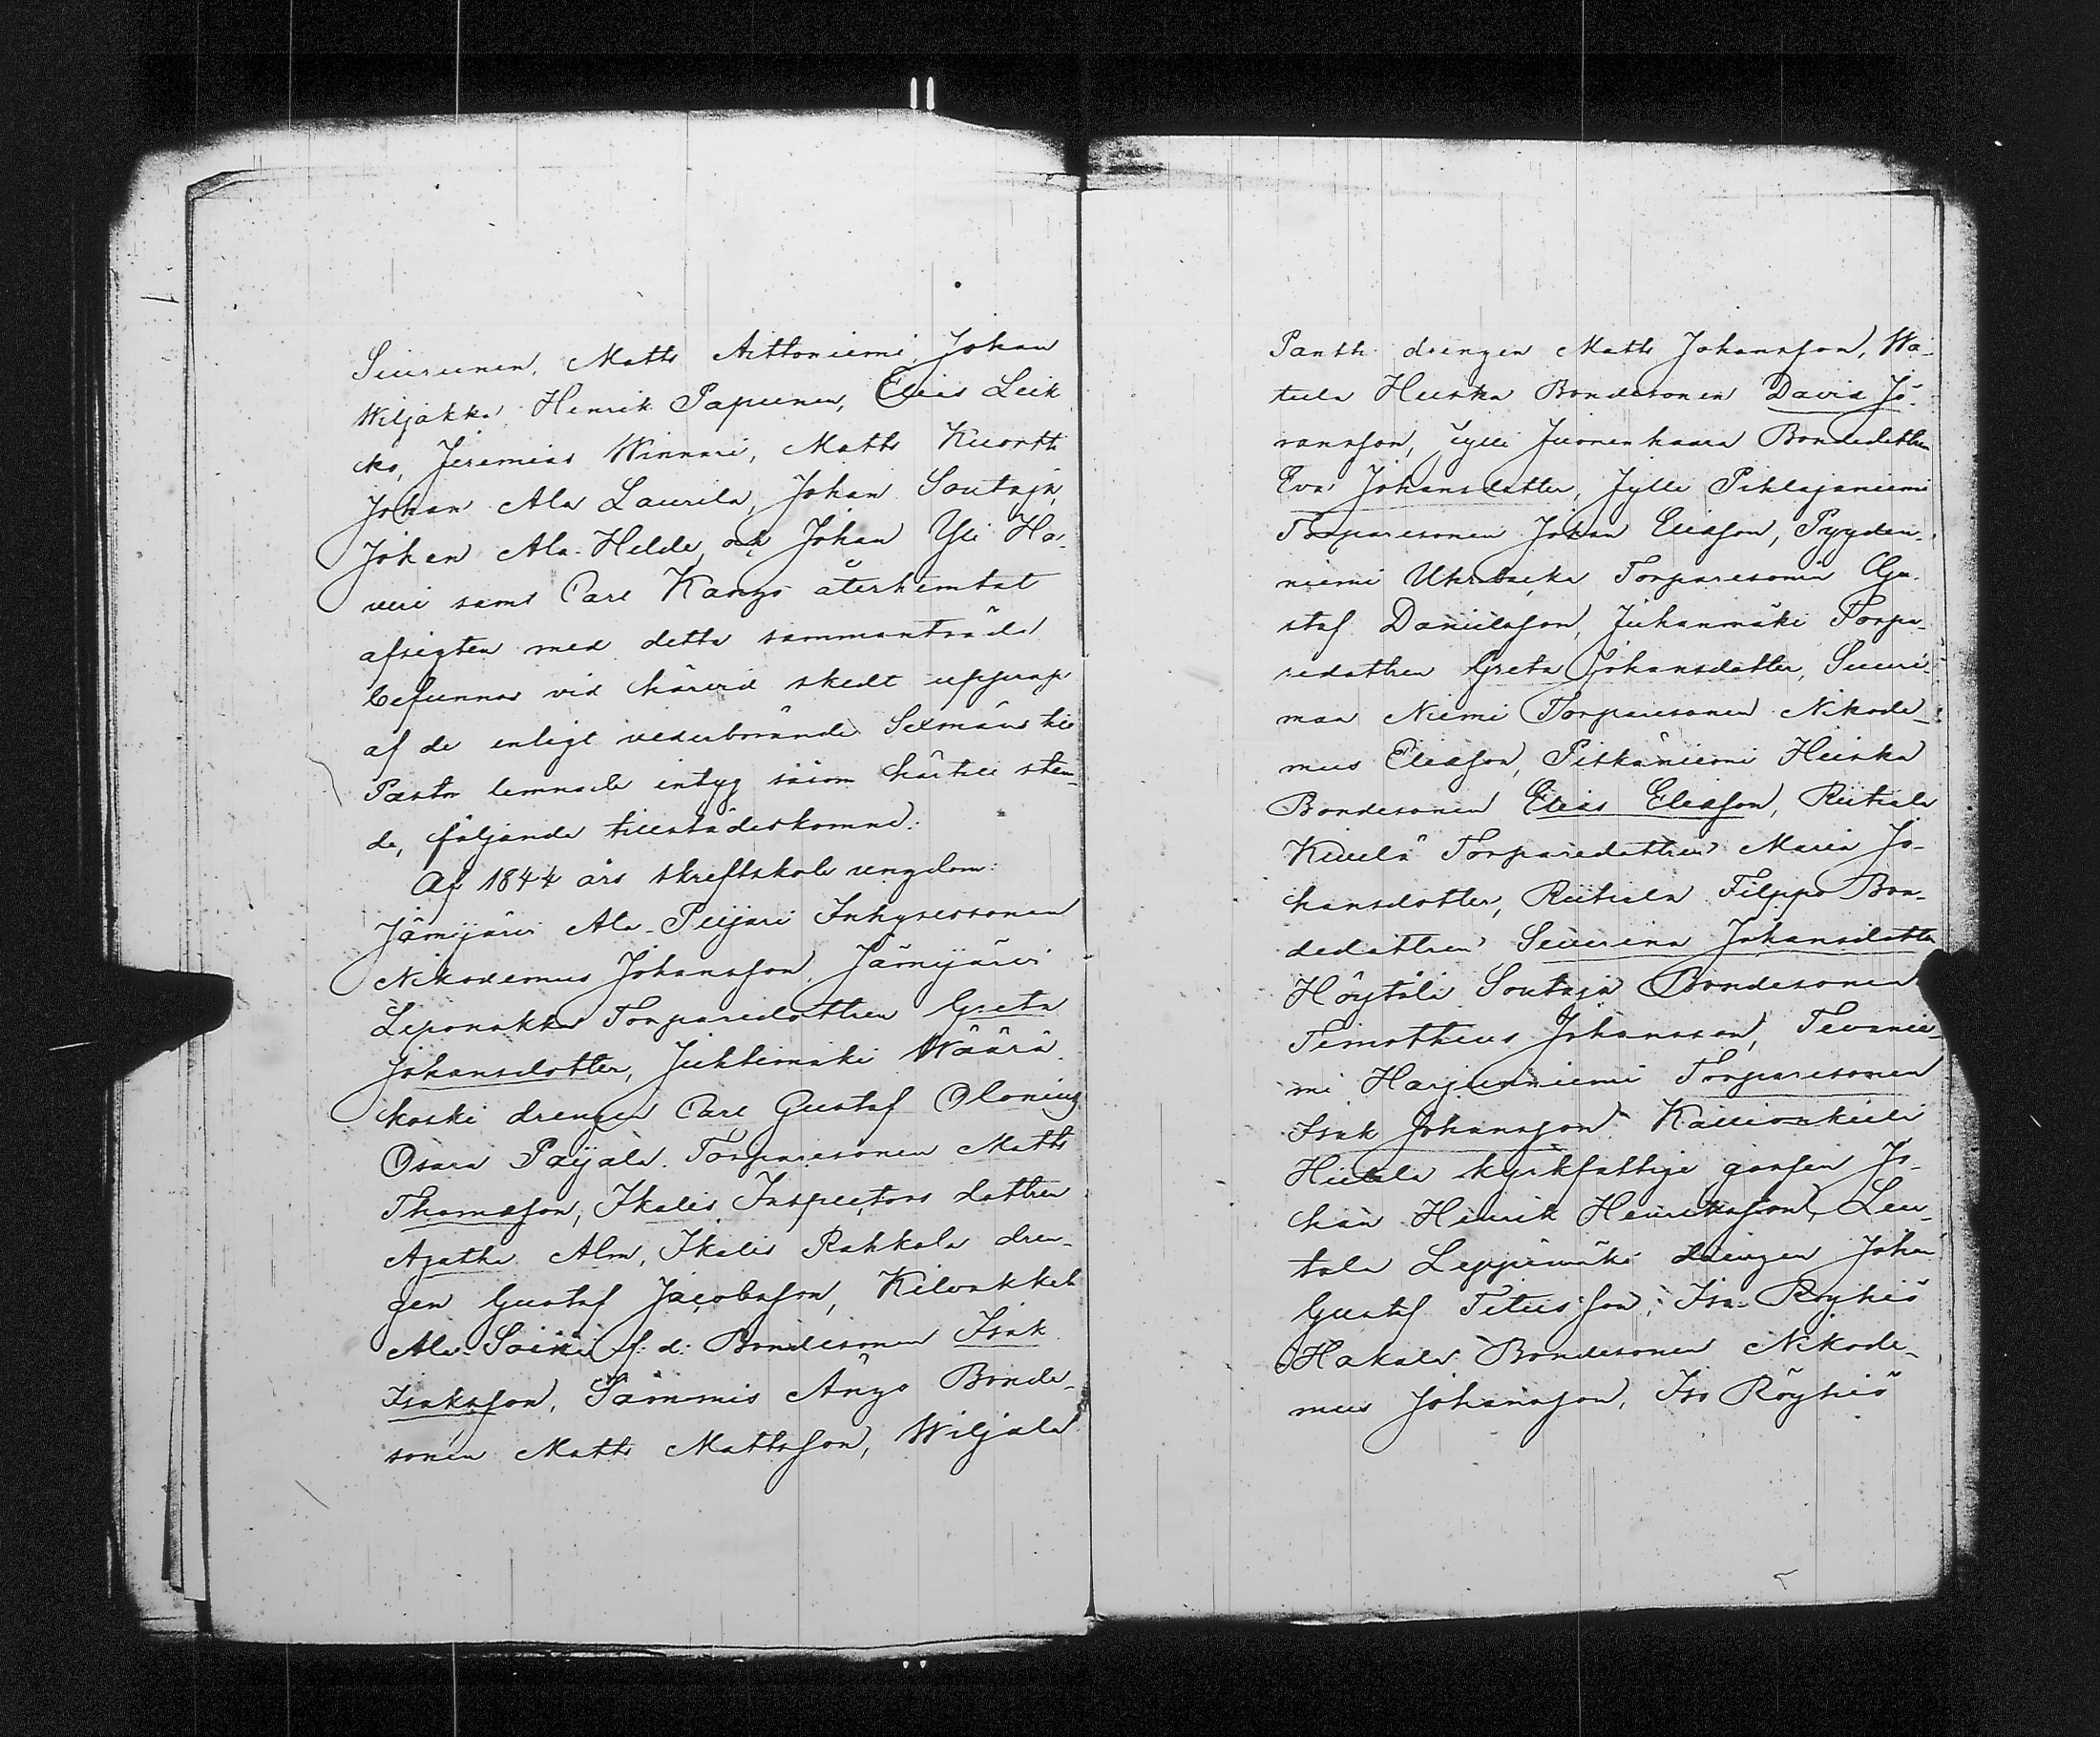 Suurunen, Matts Aittoniemi, Johan
Wiljakka, Henrik Papunen, Elias Leik
ko, Jeremias Winnari, Matts Kuortti
Johan Ala Laurila, Johan Soutaja,
Johan Ala-Helde, och Johan Yli Ha-
veri samt Carl Kango återhemtat
afsigten med detta sammanträde
befunnos vid härvid skedt upprop
af de enligt vederbörande Sexmäns till
Pastor lemnade intyg såsom härtill stem-
de, följande tillstädeskomne:
Af 1844 års skriftskole ungdom:
Jämijärvi Ala-Peijari Inhysessonen
Nikodemus Johansson, Jämijärvi
Leponokka Torparedottren Greta
Johansdotter, Juhtimäki Wäärä
koski drengen Carl Gustaf Olonius
Osara Paijala Torparesonen Matts
Thomasson, Ikalis Inspectors dottren
Agatha Alm, Ikalis Rahkola dren-
gen Gustaf Jacobsson, Kilvakkala
Ala-Soini f: d: Bondesonen Isak
Isaksson, Sammis Ängo Bonde-
sonen Matts Mattsson, Wiljala
Pantti drengen Matts Johansson, Wa-
tula Heiska Bondesonen David Jö-
ransson, Jylli Juonenhaara Bondedottren
Eva Johansdotter, Jylli Pihlajaniemi
Torparesonen Johan Eliasson, Pyyden-
niemi Uhrbacka Torparesonen Gu-
staf Danielsson, Juhanmäki Torpa-
redottren Greta Johansdotter, Suuri-
maa Niemi Torparesonen Nikode-
mus Eliasson, Pitkäniemi Heiska
Bondesonen Elias Eliasson, Riitiala
Kiivilä Torparedottren Maria Jo-
hansdotter, Riitiala Filppo Bon-
dedottren Severina Johansdotter
Höytöli Soutaja Bondesonen
Timotheus Johansson, Tevanie-
mi Harjunniemi Torparesonen
Isak Johansson, Kallionkieli
Hiitola kyrkfattige gossen Jo-
han Henrik Henriksson, Leu-
tola Leppimäki drengen Johan
Gustaf Titusson, Iso-Röyhiö
Hakala Bondesonen Nikode-
mus Johansson, Iso Röyhiö